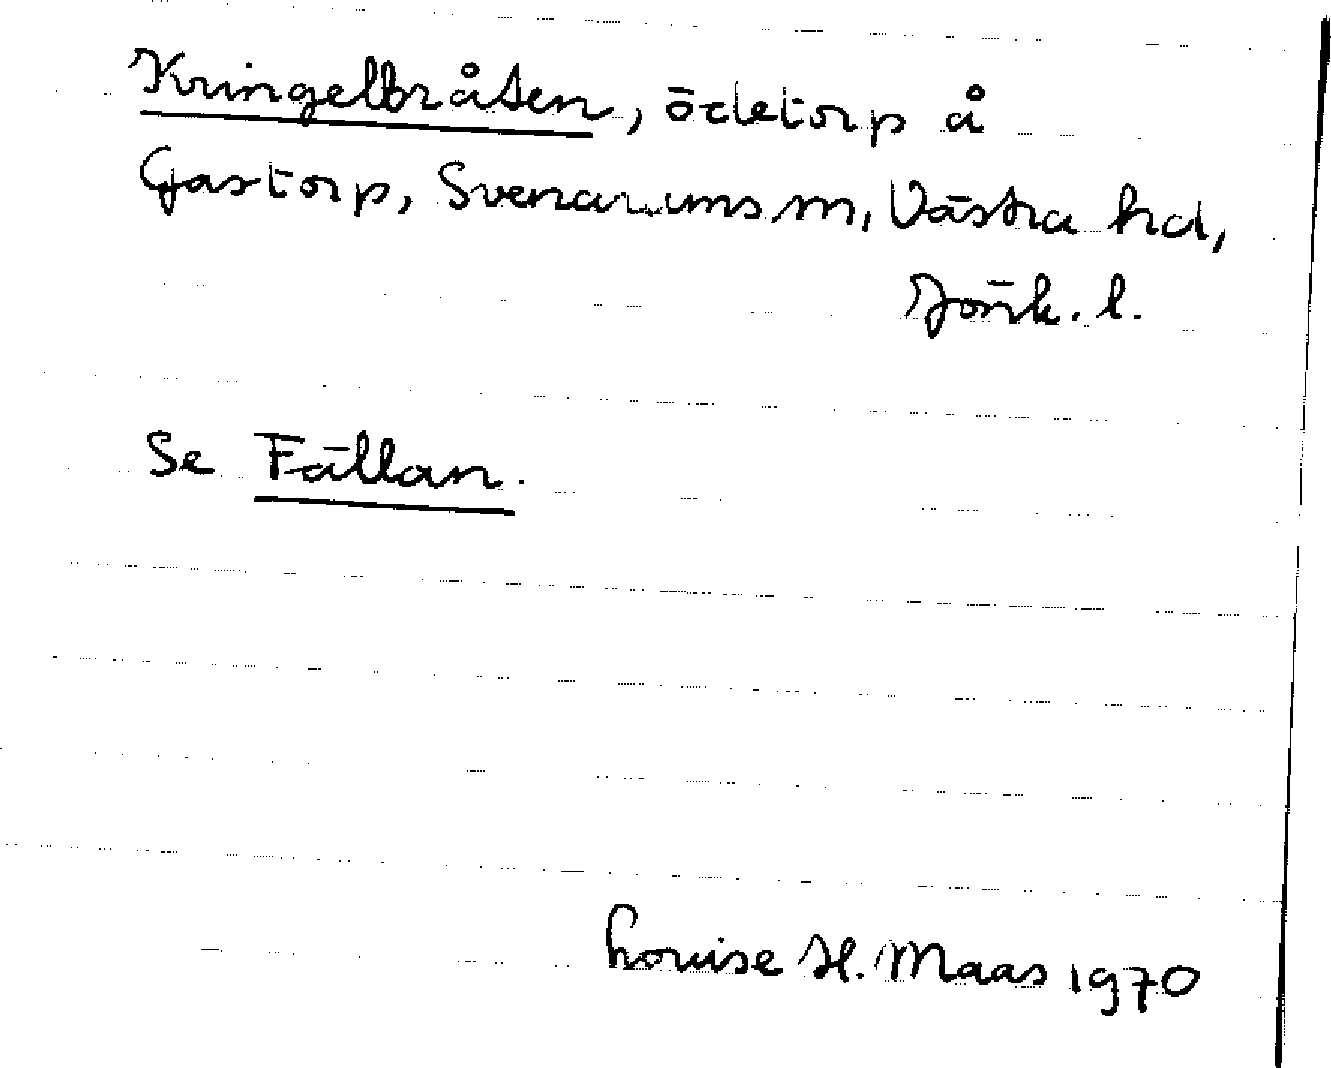 Kringelbråten, ödetorp å
Gastorp, Svenarums sn, Västra hd,
Jönk. l.
Se Fällan.
Louise H. Maas 1970